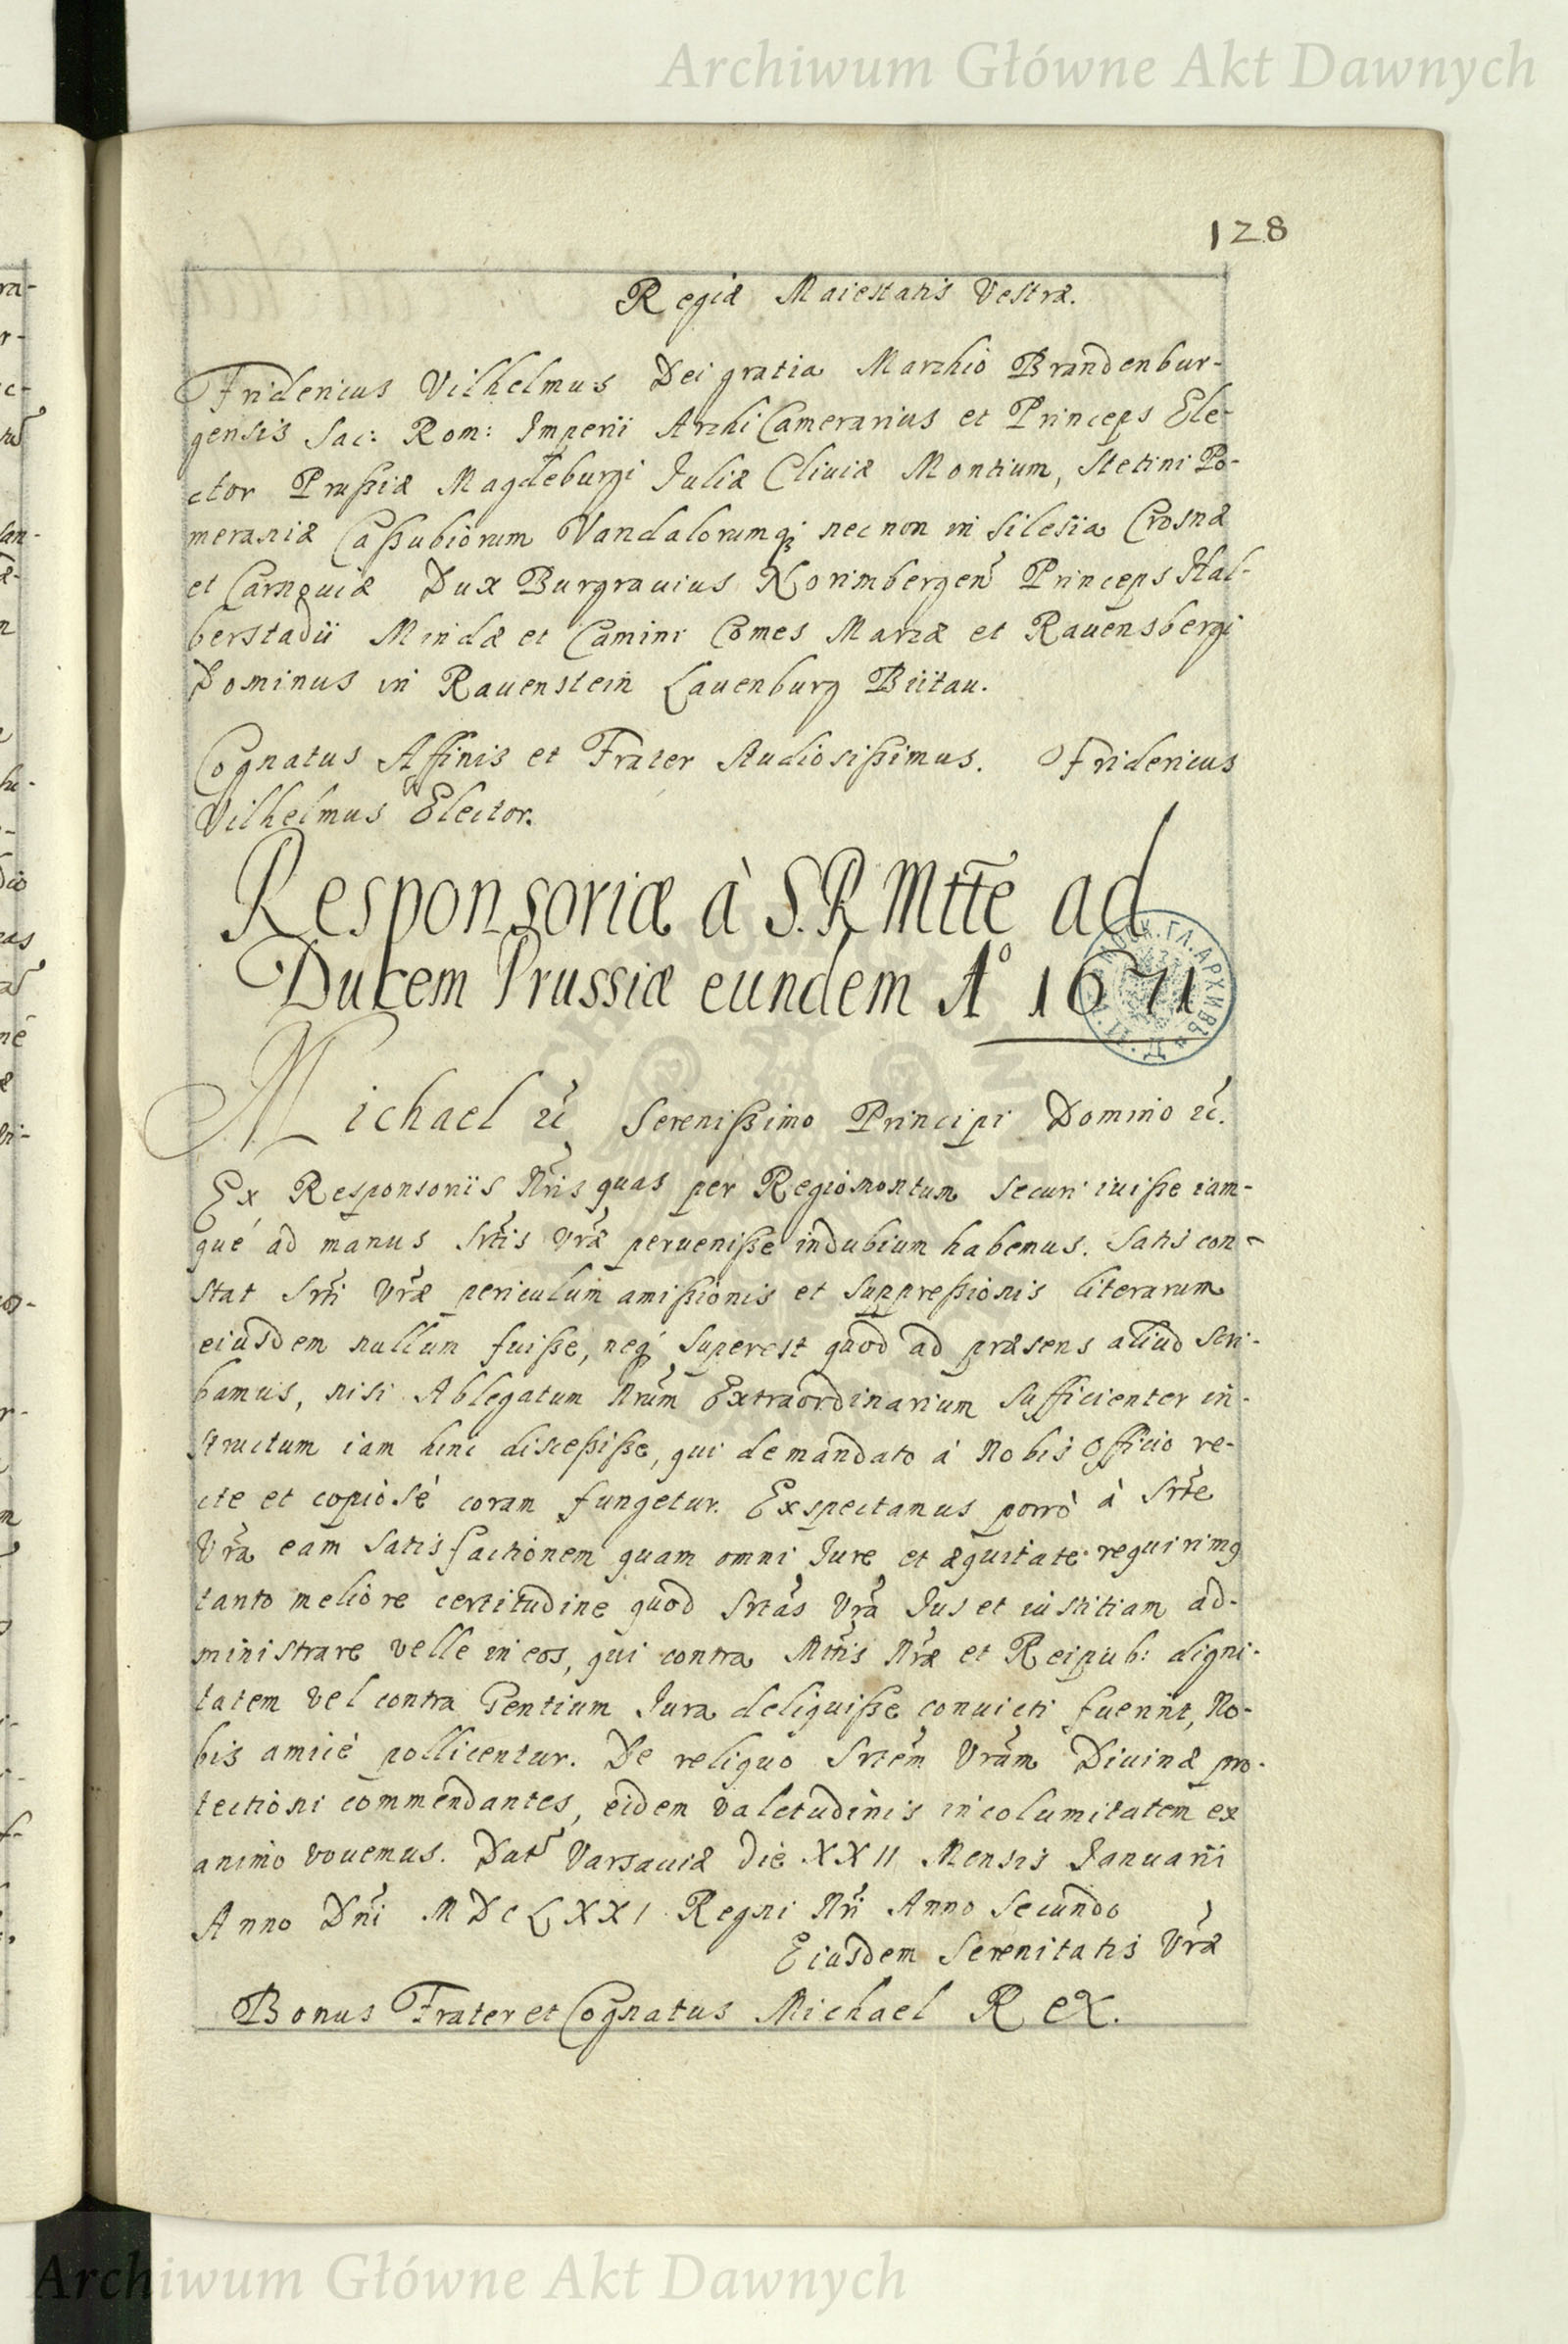 Archiwum Główne Akt Dawnych
128
Regiæ Maiestatis Vestræ.
Fridericus Vilhelmus Dei gratia Marchio Brandenbur-
gensis Sac: Rom: Imperii Archi Camerarius et Princeps Ele-
ctor Prußiæ Magdeburgi Juliæ Cliviæ Montium, Stetini Po-
meraniæ Caßubiorum Vandalorumq; nec non in Silesia Crosnæ
et Carnoviæ Dux Burgravius Norimbergen̄ Princeps Hal-
berstadii Mindæ et Camini Comes Marcæ et Ravensbergi
Dominus in Ravenstein Lavenburg Biitau.
Cognatus Affinis et Frater Studiosißimus. Fridericus
Vilhelmus Elector.
Responsoriæ à S.R Mtte ad
Ducem Prussiæ eundem A° 1671
Michael &c Serenißimo Principi Domino &c.
Ex Responsoriis Nris quas per Regiomontum securi iviße iam-
qué ad manus Srtis Vræ perveniße indubium habemus. Satis con-
stat Srti Vræ periculum amißionis et suppreßionis literarum
eiusdem nullum fuiße, neq; superest quod ad præsens aliud scri-
bamus, nisi Ablegatum Nrum Extraordinarium sufficienter in-
structum iam hinc disceßiße, qui demandato á Nobis Officio re-
cte et copiosè coram fungetur. Exspectamus porrò à Srte
Vra eam satisfactionem quam omni Jure et æquitate requirimq
tanto meliore certitudine quod Srtas Vra Jus et iustitiam ad-
ministrare velle in eos, qui contra Mttis Nræ et Reipub: digni-
tatem vel contra Gentium Jura deliquiße convicti fuerint, No-
bis amicè pollicentur. De reliquo Srtem Vram Divinæ pro-
tectioni commendantes, eidem valetudinis incolumitatem ex
animo vovemus. Dat Varsaviæ die XXII Mensis Januarii
Anno Dni MDCLXXI Regni Nri Anno Secundo
Eiusdem Serenitatis Vræ
Bonus Frater et Cognatus Michael Rex.
Archiwum Główne Akt Dawnych